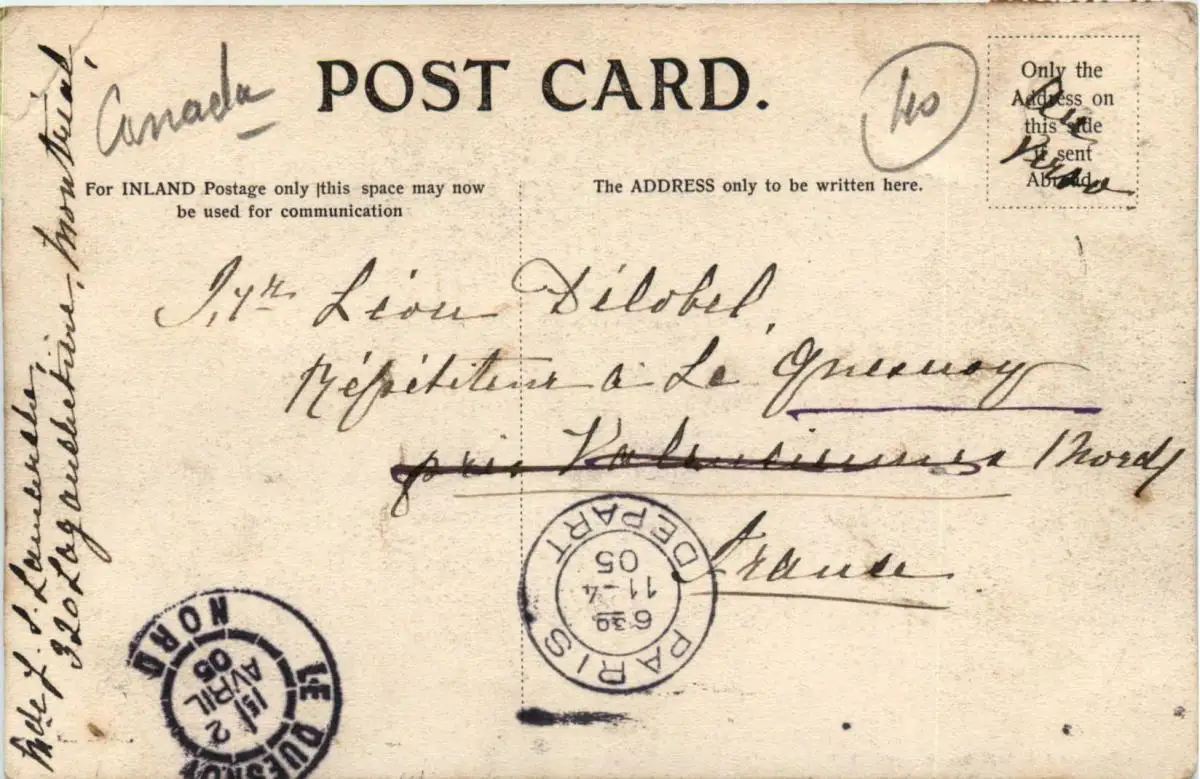 Canada
POST CARD.
40
Only the
Address on
this side
if sent
Abroad.
Au
Verso
For INLAND Postage only this space may now
be used for communication
The ADDRESS only to be written here.
Léon Délobel,
Répétiteur à Le Quesnoy
près Valenciennes (Nord)
France
PARIS DEPART
6 30
11 - 4
05
LE QUESNOY
NORD
2
AVRIL
05
320 Lagauchetière, Montréal,